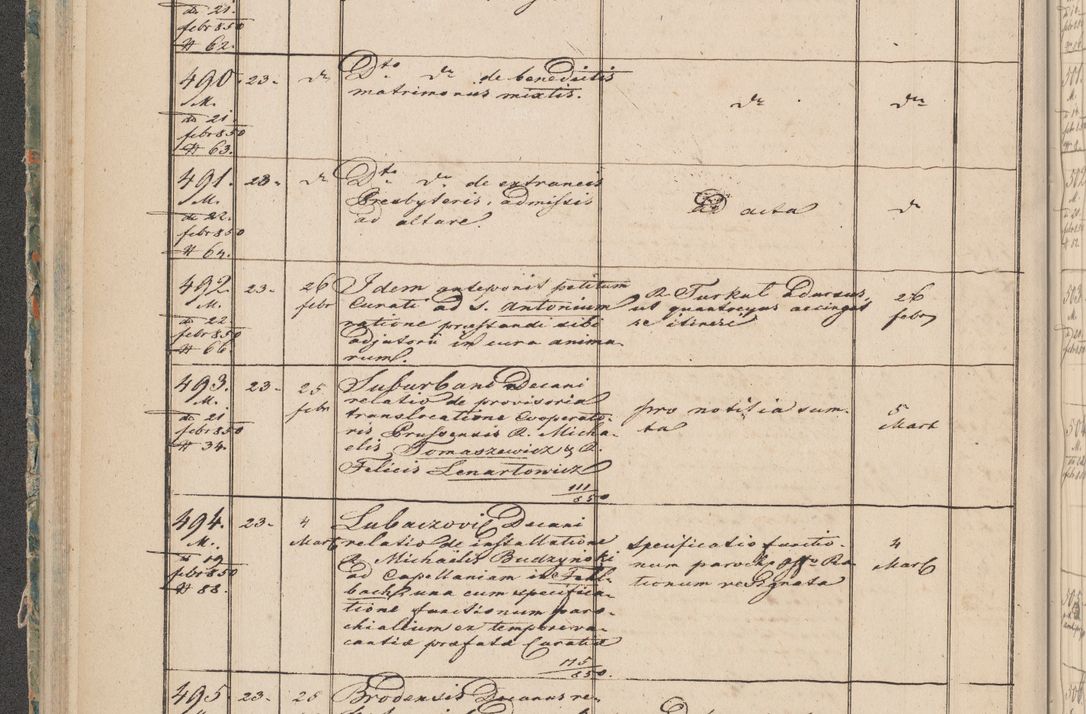 dd 21.
febr 850
# 62.
490. 23.
M.
dd 21
febr 850
# 63.
Dto de benedictis
matrimoniis mixtis.
491. 23.
M.
dd 22.
febr 850
# 64.
Dto de extraneis
Presbyteris, admissis
ad altare.
ad acta
492. 23. 26
M. febr
dd 22
febr 850
# 66
Idem anteponit petitum
Curati ad S. Antonium
ratione præstandi sibi
adjutorii in cura anima
rum.
R. Turkul
ut quantocyus accingat
se itineri
26
febr
493. 23. 25
M. febr
dd 21
febr 850
# 34.
Suburbani Decani
relatio de provisoria
translocatione Cooperato-
ris R. Micha-
elis Tomaszewicz & R.
Felicis Lenartowicz
111
850
pro notitia sum-
ta
5
Mart
494. 23. 4
M. Mart
dd 19
febr 850
# 88.
Lubaczović Decani
relatio de installatione
R. Michaelis Budzynski
ad Capellaniam in Fehl-
bach, una cum specifica-
tione functionum paro-
chialium ex tempore va-
cantiæ præfatæ Curatiæ
115
850.
specificatio functio-
num paroch. offo Ra
tionum resignata
4
Mart
495. 23. 25
Brodensis Decanus re-